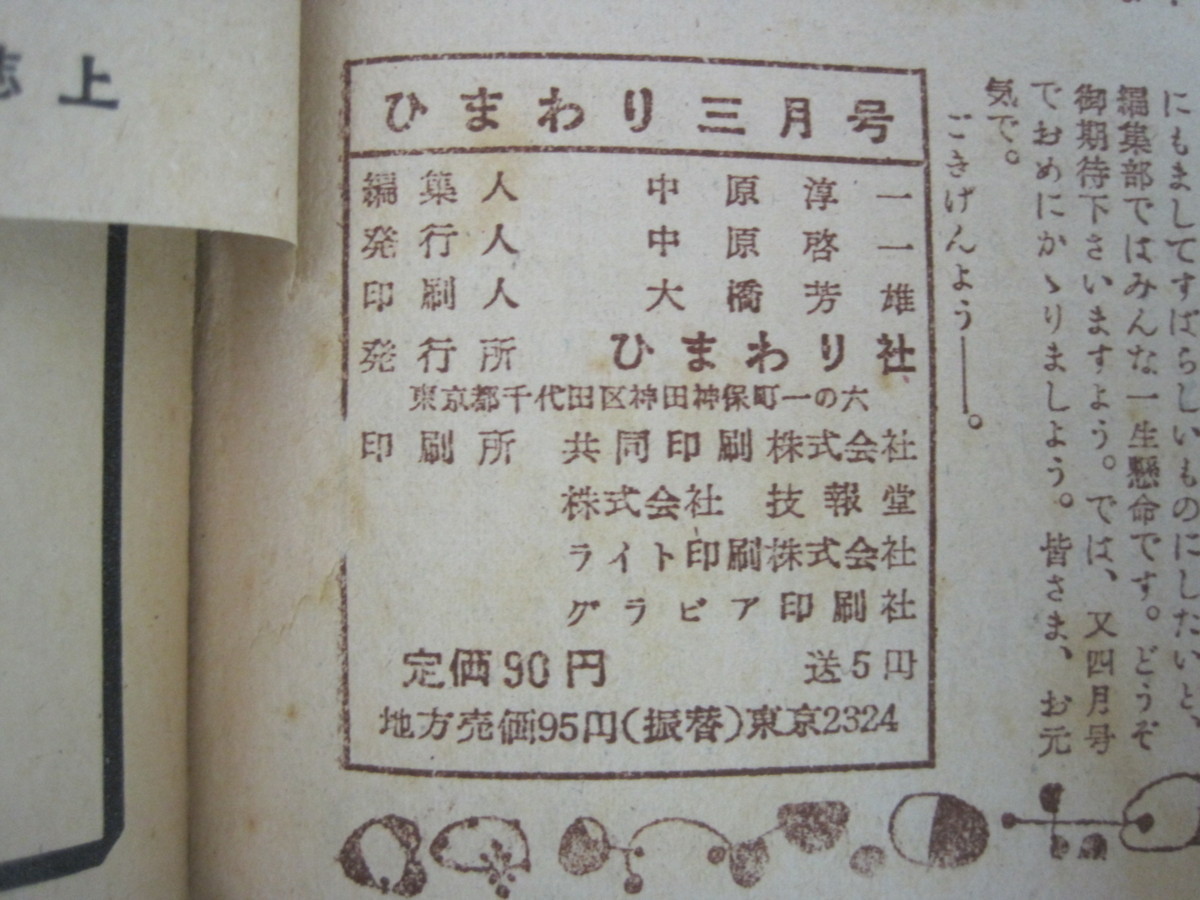 ひまわり三月号
編集人 中原淳一
発行人 中原啓一
印刷人 大橋芳雄
発行所 ひまわり社
東京都千代田区神田神保町一の六
印刷所 共同印刷株式会社
株式会社 技報堂
ライト印刷株式会社
グラビア印刷社
定価90円 送5円
地方売価95円(振替)東京2324
にもましてすばらしいものにしたいと、
編集部ではみんな一生懸命です。どうぞ
御期待下さいますよう。では、又四月号
でおめにかゝりましよう。皆さま、お元
気で。
ごきげんよう――。
上